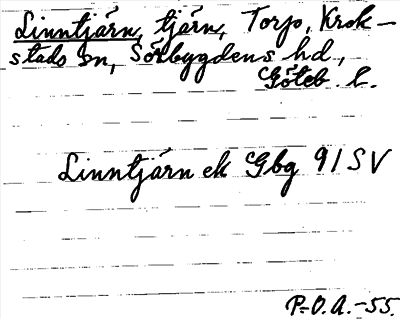 Linntjärn, tjärn, Torp, Krok-
stads sn, Sörbygdens hd,
Göteb. l.
Linntjärn ek Gbg 91 SV
P-O.A.-55.